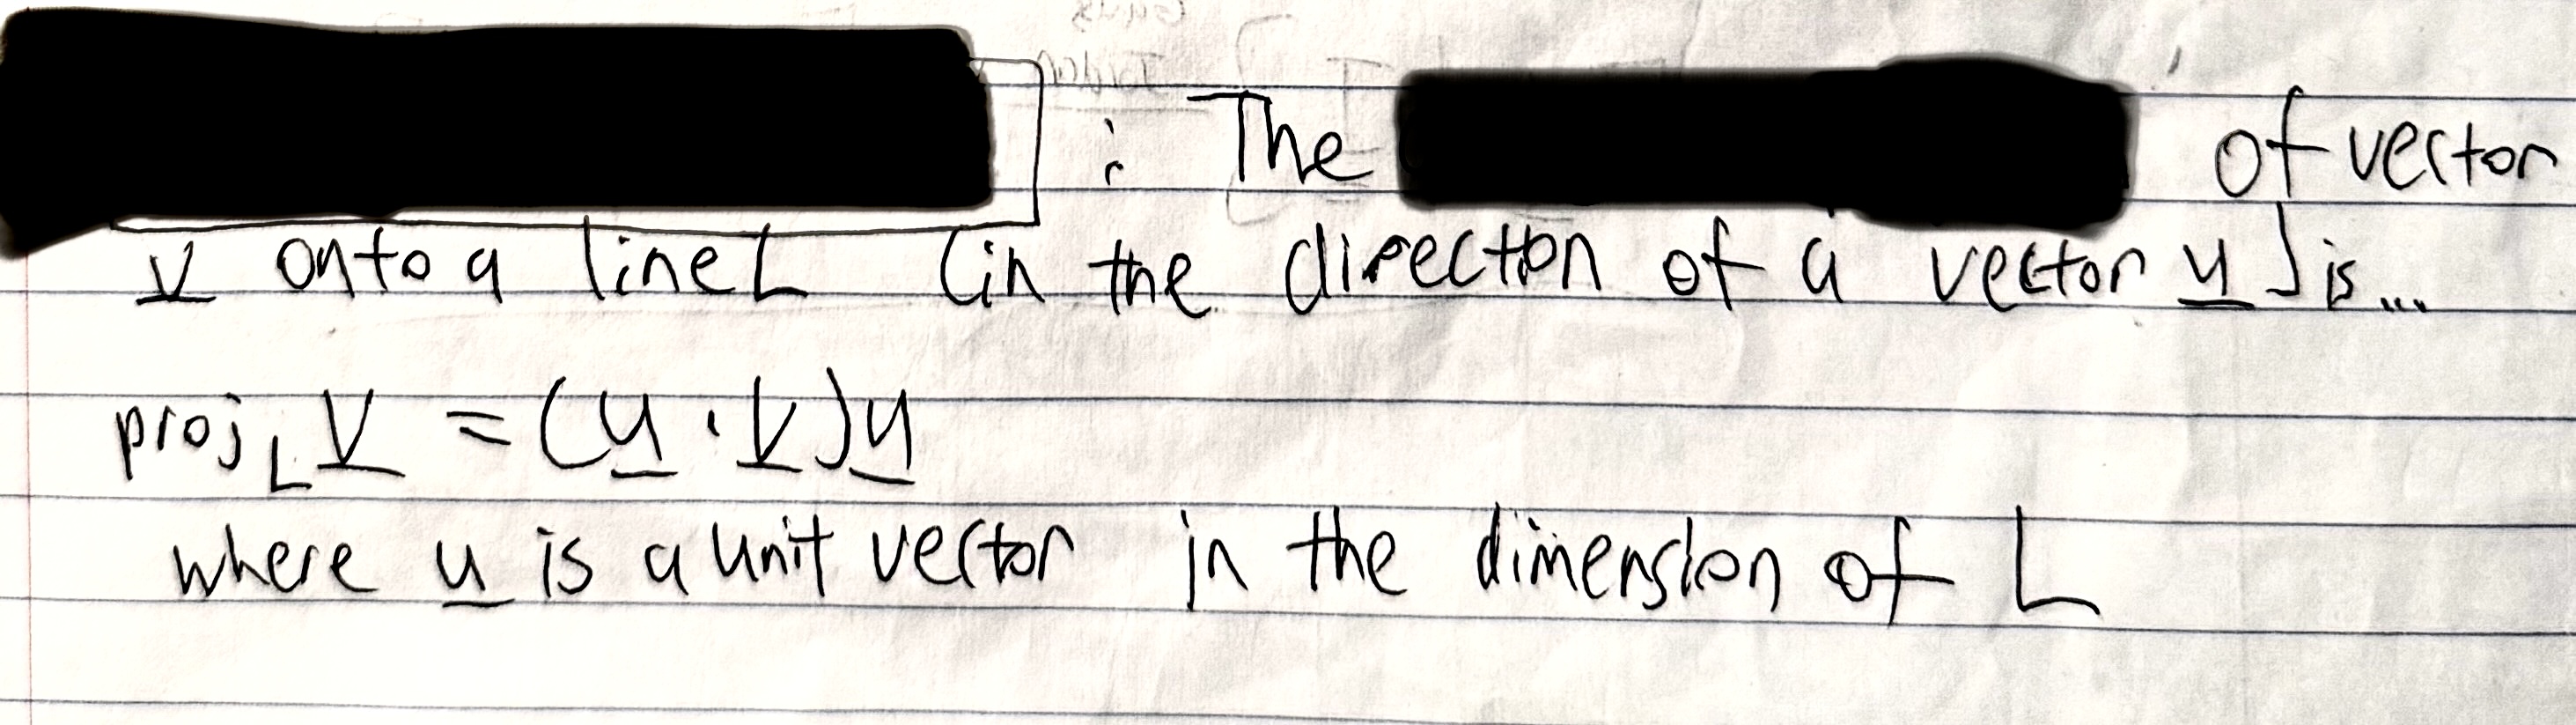 : The of vector
v onto a line L (in the direction of a vector u) is...
proj_L v = (u · v)u
where u is a unit vector in the dimension of L